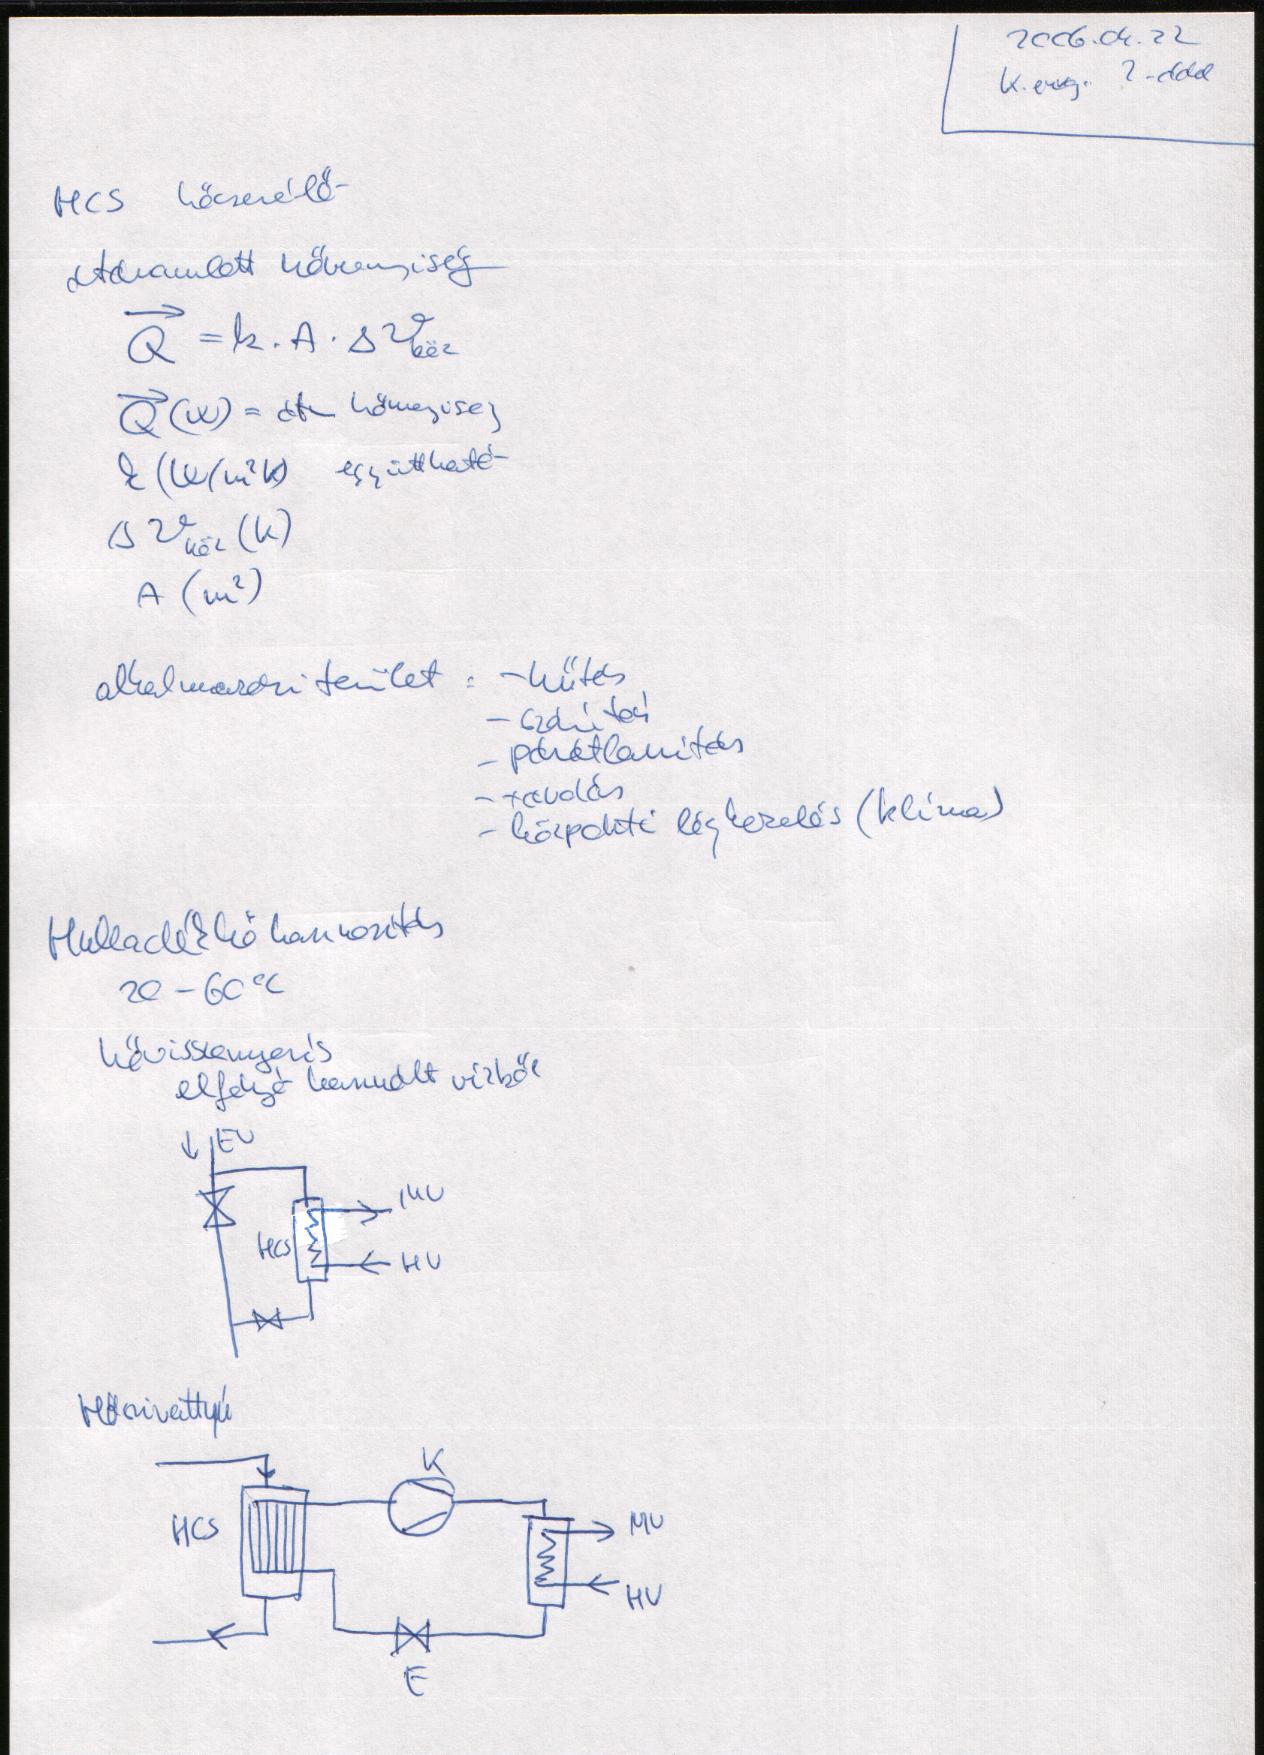 2006.04.22
K. erg. 2. oldal
HCS hőcserélő
átáramlott hőmennyiség
Q = k · A · Δϑköz
Q (W) = átá hőmenyiség
k (W/m²K) együttható
Δϑköz (K)
A (m²)
alkalmazási terület : - hűtés
- szárítás
- párátlanítás
- központi légkezelés (klíma)
Hulladékhő hasznosítás
20 - 60 °C
hővisszanyerés
elfolyó használt vízből
EV
MV
HCS
HV
Hőszivattyú
K
HCS
MV
HV
E